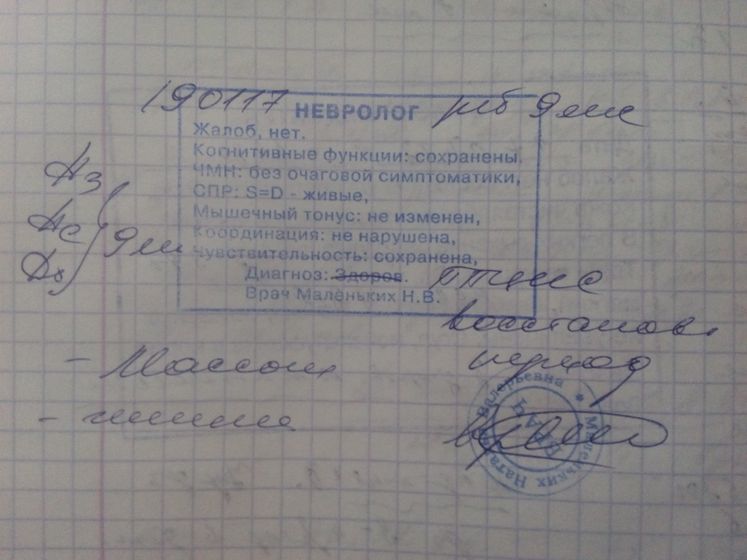 190117 НЕВРОЛОГ рсб 9 мес
Жалоб, нет.
Когнитивные функции: сохранены,
ЧМН: без очаговой симптоматики,
СПР: S=D - живые,
Мышечный тонус: не изменен,
Координация: не нарушена,
Чувствительность: сохранена,
Диагноз: Здоров. ПТЦНС
Врач Маленьких Н.В.
восстанов.
период
Нз
Нс
9 м
- Массаж
Маленьких Наталья Валерьевна
ВРАЧ